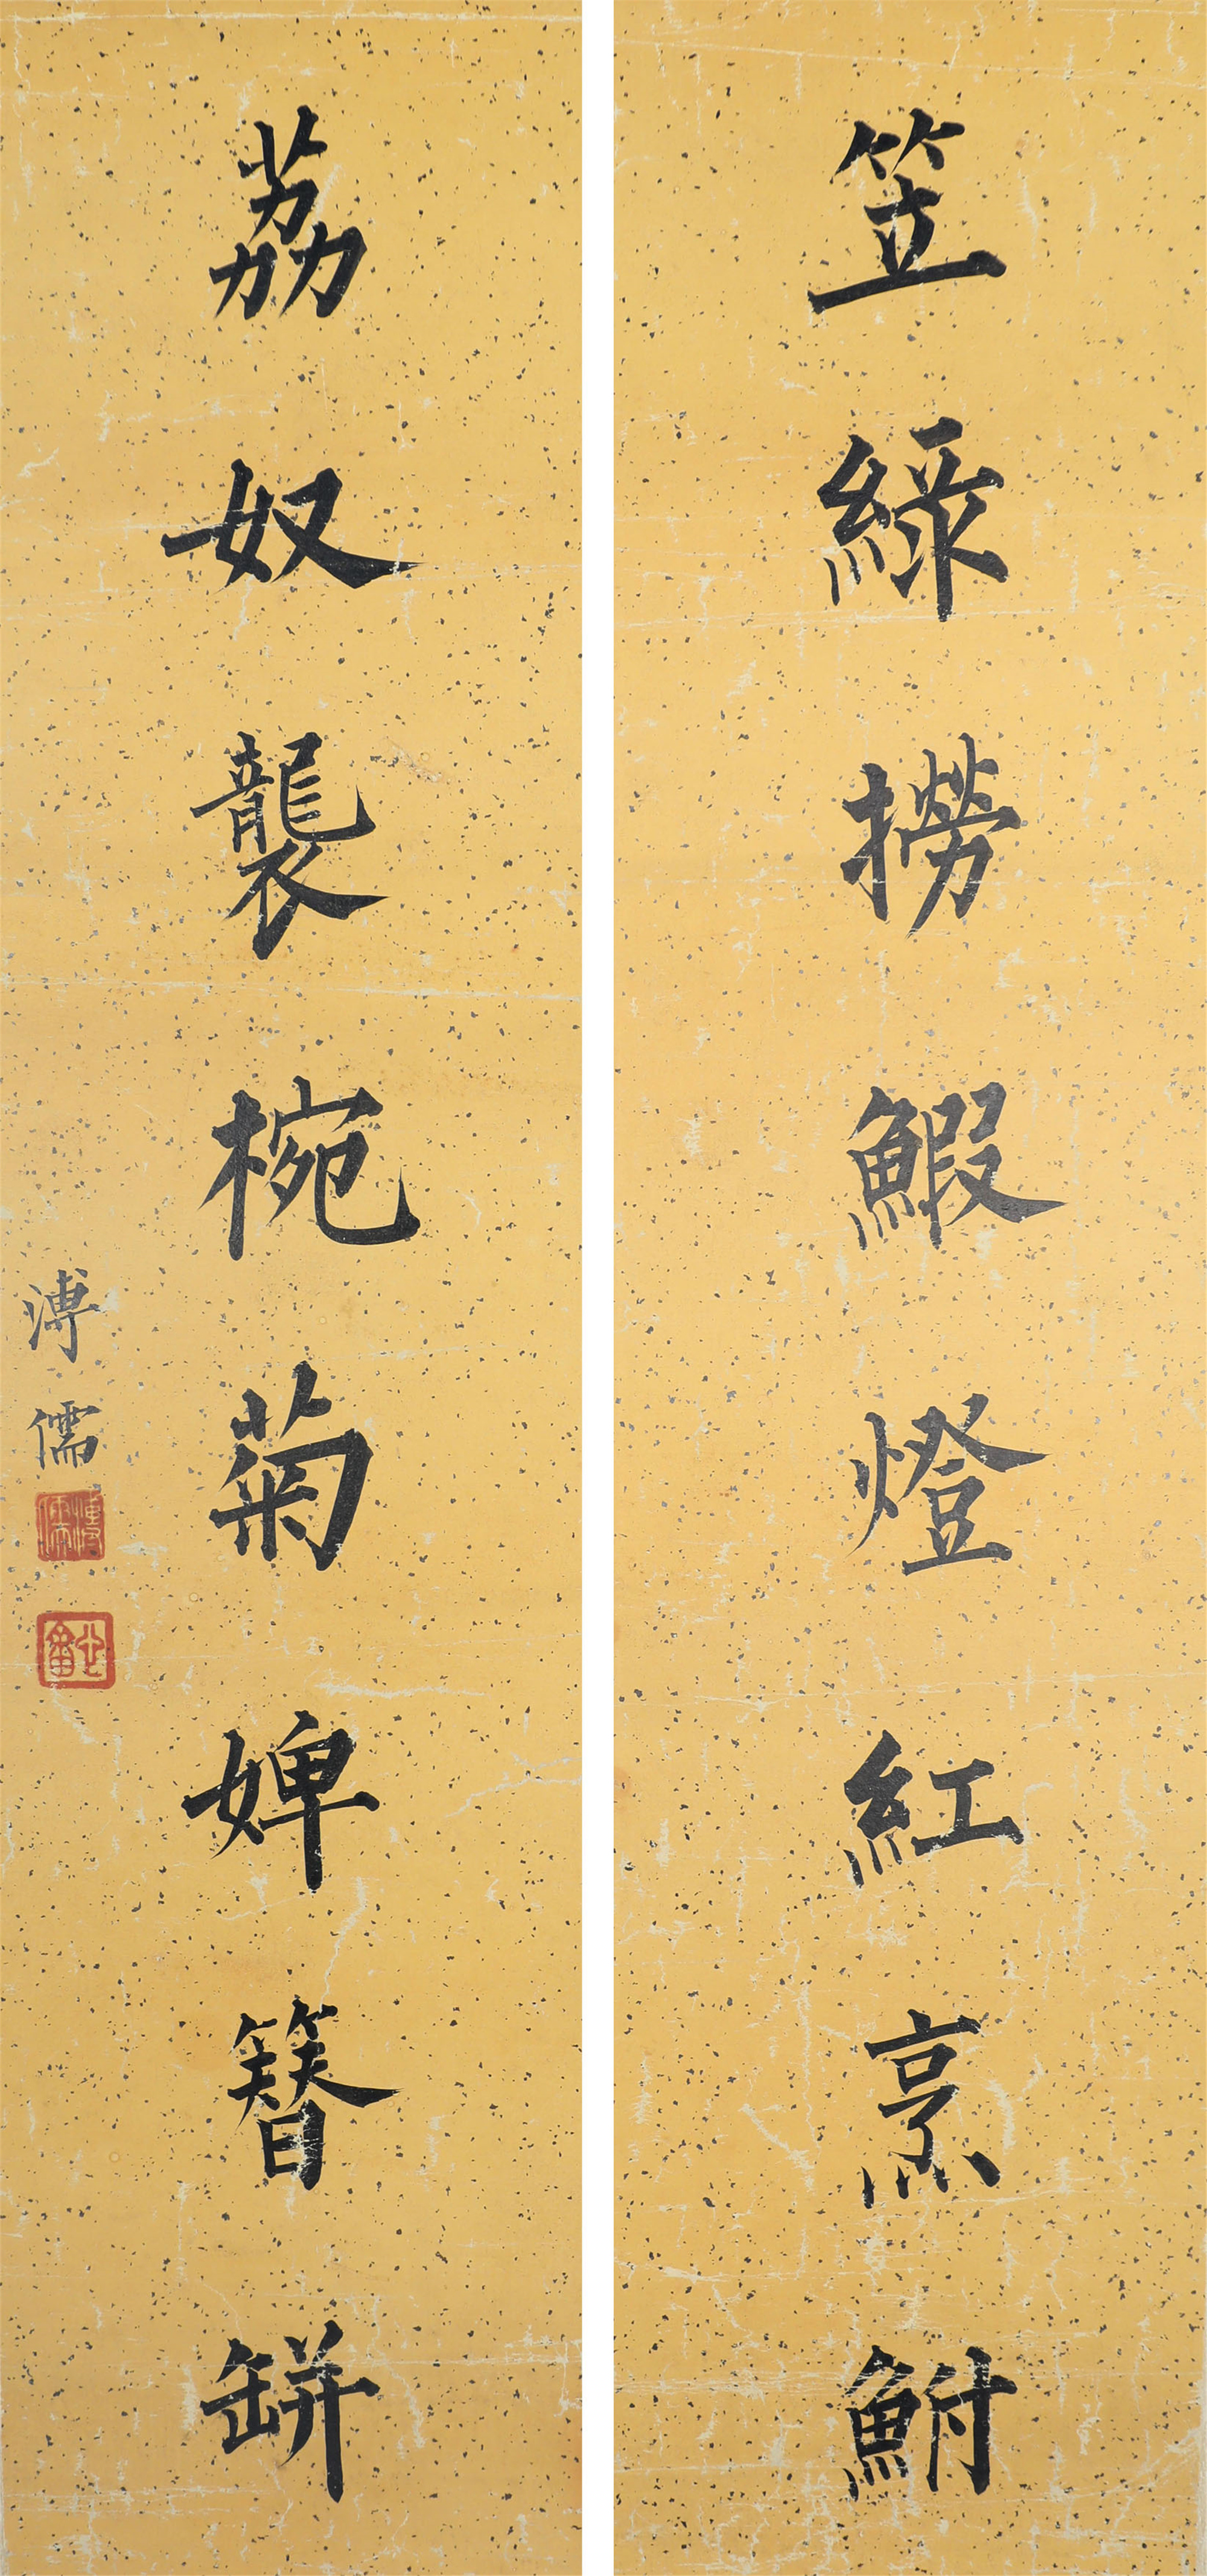 笠綠撈鰕燈紅烹鮒
荔奴襲椀菊婢簪缾
溥儒
溥儒